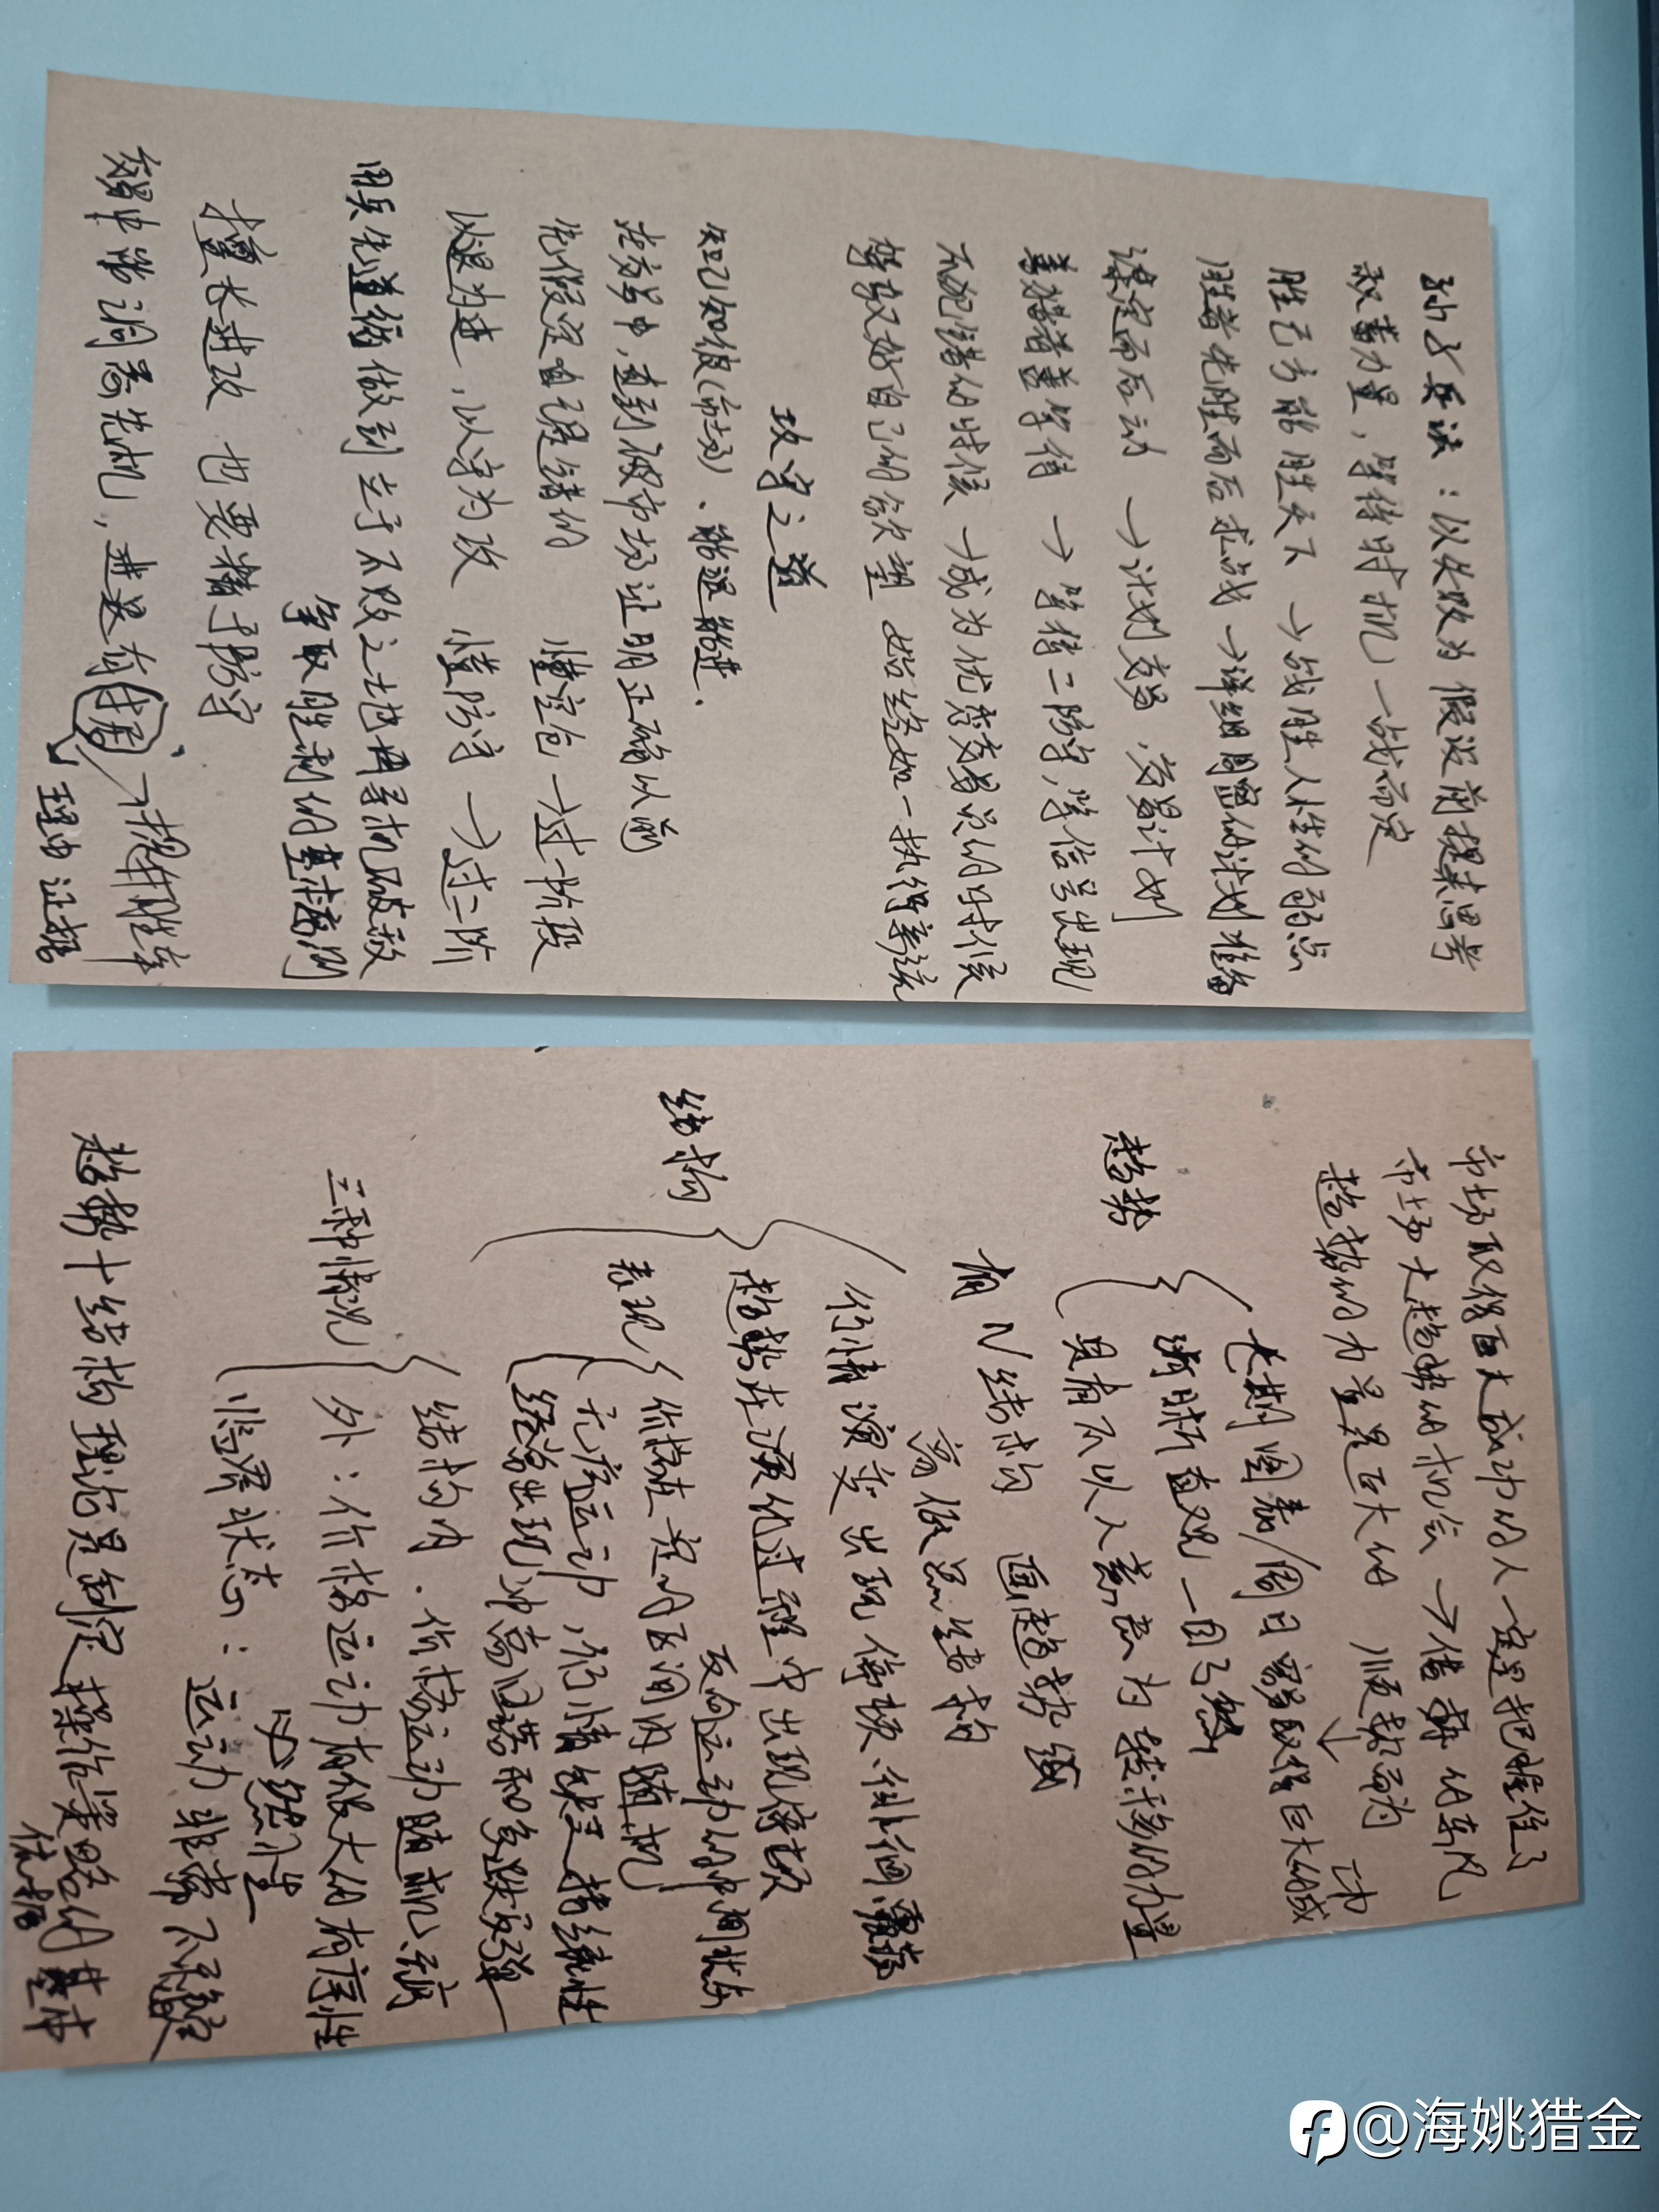 孙子兵法：以失败为假设前提来思考
积蓄力量，等待时机，一战而定
胜己方能胜天下 →战胜人性的弱点
胜者先胜而后求战 →详细周密的计划准备
谋定而后动 →计划交易，交易计划
善猎者善等待 →等待二阶字，等信号出现
不犯错的时候 →成为优秀交易员的时候
掌握好自己的 始终如一执行系统
攻守之道
知己知彼（市场）、能退能进.
在交易中，直到被市场证明正确以前
先假定自己是错的 懂空仓→过一阶段
以退为进，以守为攻 懂防守→过二阶
用兵先道 做到立于不败之地再寻机破敌
争取胜利的基本原则
擅长进攻 也要精于防守
交易中需洞悉先机，进思有 →提升胜率
理由 证据
市场取得巨大成功的人一定是把握住了
市场大趋势的机会→借 的东风
趋势的力量是巨大的 顺势而为
趋势
长期图表/周日 易取得巨大的成功
清晰直观 一目了然
具有不以人意志为转移的力量
有N结构 画趋势线
高低点结构
结构
行情演变出现停顿、徘徊、震荡
趋势在演化过程中出现停顿
反向运动的中间状态
表现
价格在一定的区间内随机
无序运动，行情缺乏持续性
经常出现冲高回落和急跌反弹
三种情况
结构内：价格运动随机无序
外：价格运动有很大的有序性
必然性
临界状态：运动非常不稳定
趋势+结构理论是制定操作策略的基本
依据
@海姚猎金